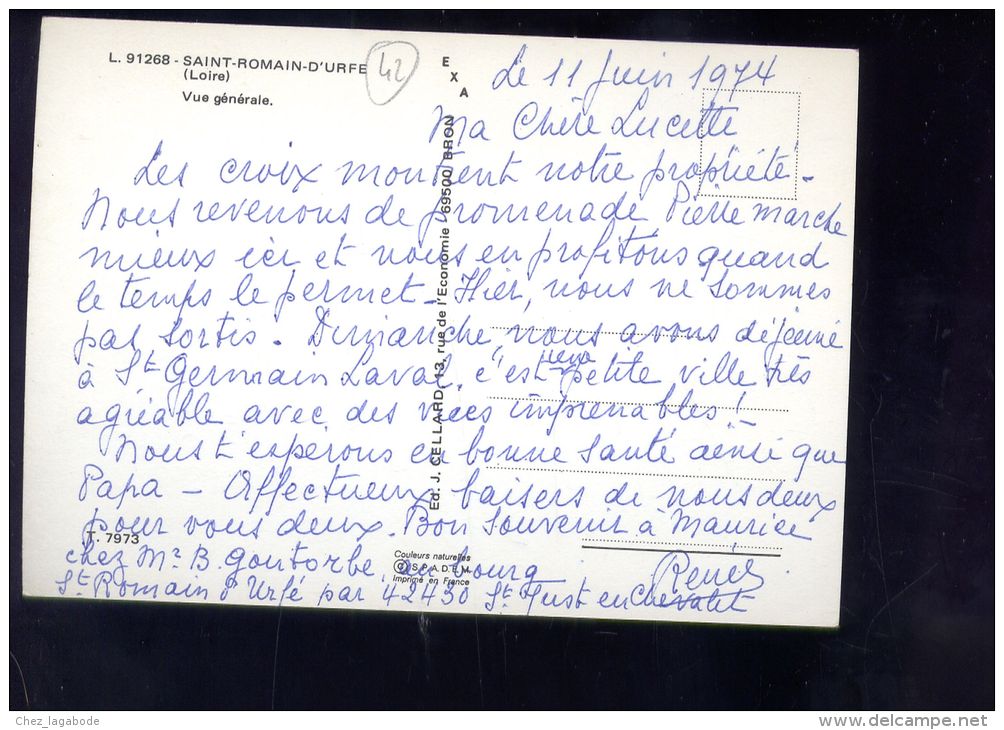 L. 91268 - SAINT-ROMAIN-D'URFE
(Loire)
Vue générale.
42
EXA
Le 11 Juin 1974
Ma Chère Lucette
Les croix montrent notre propriété -
Nous revenons de promenade Pierre marche
mieux ici et nous en profitons quand
le temps le permet - Hier, nous ne sommes
pas sortis. Dimanche, nous avons déjeuné
à St Germain Laval, c'est une petite ville très
agréable avec des vues imprenables !
Nous t'espérons en bonne santé ainsi que
Papa - Affectueux baisers de nous deux
pour vous deux. Bon souvenir à Maurice
Renée
chez Mr B. Goutorbe, au bourg
St Romain d'Urfé par 42430 St Just en Chevalet
Ed. J. CELLARD, 13, rue de l'Economie - 69500 BRON
T. 7973
Couleurs naturelles
© S.P.A.D.E.M.
Imprimé en France
Chez_lagabode
www.delcampe.net